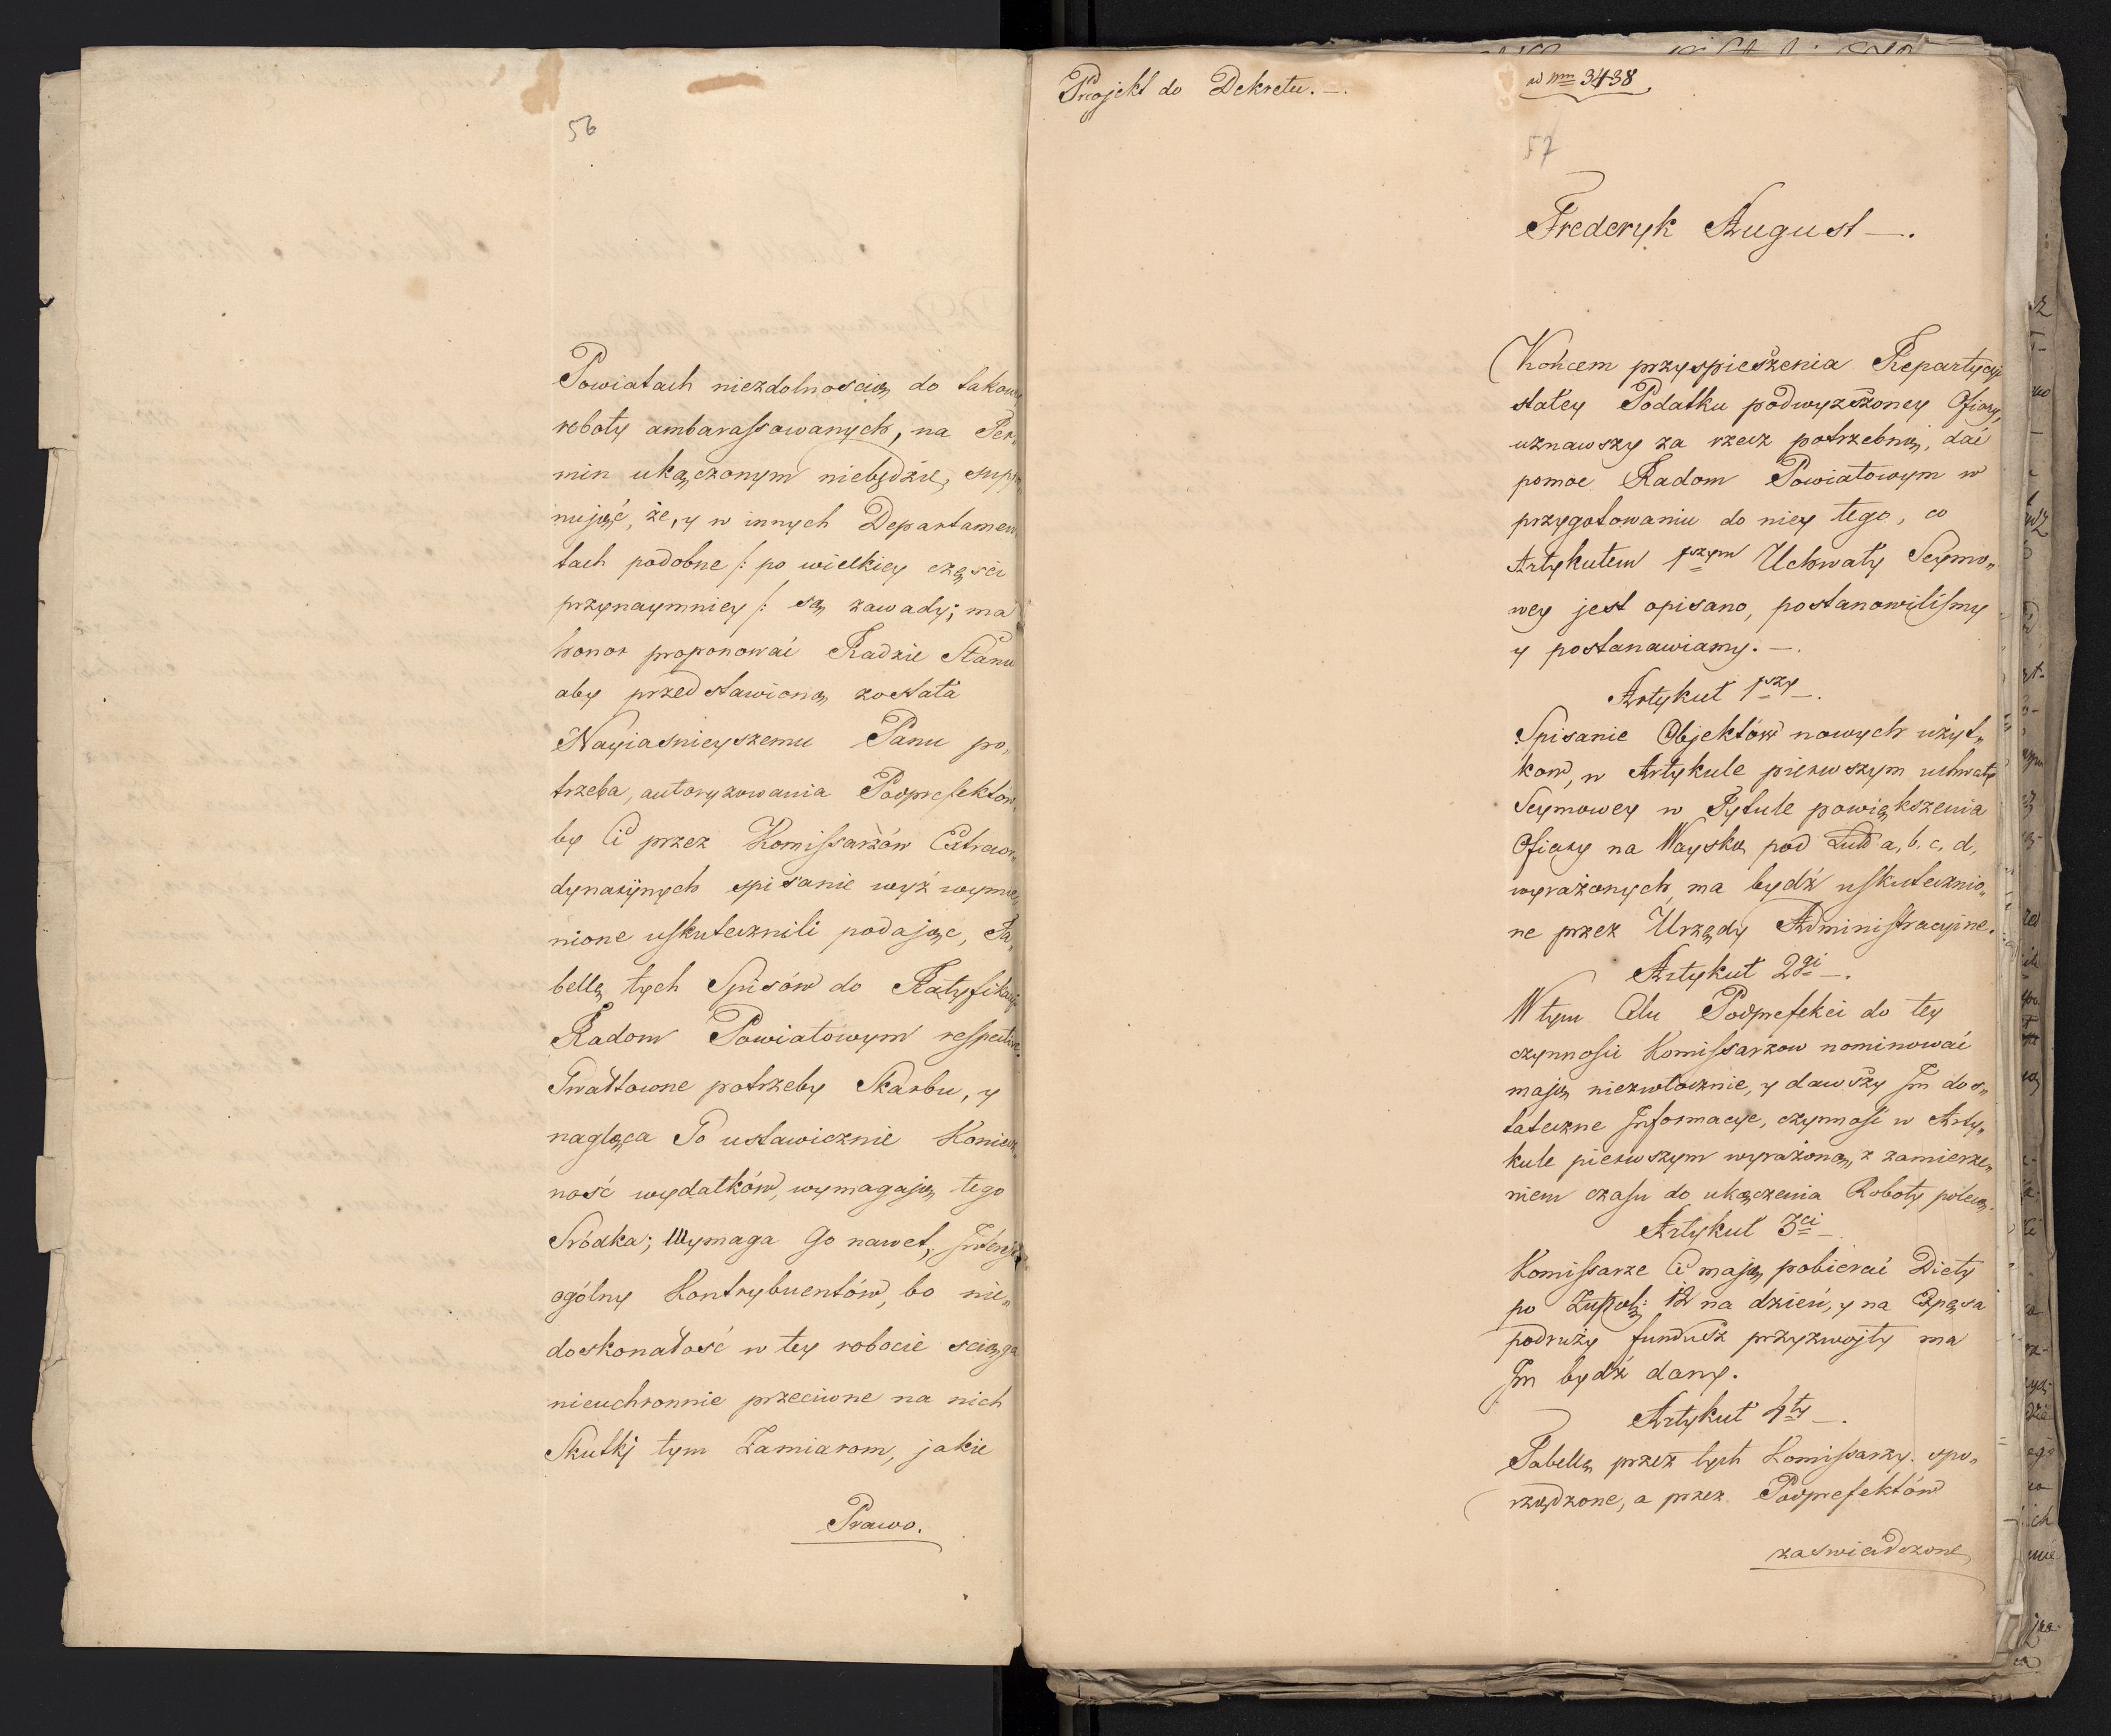 56
Powiatach niezdolnoscią do takow
roboty ambarassowanych, na Ter„
min ukączonym niebędzie, supp
nując, że, y w innych Departamen
tach podobne /: po wielkiey częsci
przynaymniey /: są zawady; ma
honor proponować Radzie Stanu
aby przedstawioną została
Nayiasnieyszemu Panu po„
trzeba, autoryzowania Podprefektów,
by Ci przez Komissarzów Extraor„
dynaryinych spisanie wyż wymie
nione uskutecznili podając, Ta„
bellę tych Spisów do Ratyfikacyi
Radom Powiatowym respective.
Gwałtowne potrzeby Skarbu, y
nagląca To ustawicznie Koniecz„
ność wydatków, wymagają tego
Sródka; Wymaga Go nawet, Interes
ogólny Kontrybuentów, bo nie„
doskonałość w tey robocie sciąga
nieuchronnie przeciwne na nich
Skutki tym Zamiarom, jakie
Prawo.
Projekt do Dekretu. —.
w nm 3438.
57
Frederyk August —.
Końcem przyspieszenia Repartycyi
stałey Podatku podwyższoney Ofiary,
uznawszy za rzecz potrzebną, dać
pomoc Radom Powiatowym w
przygotowaniu do niey tego, co
Artykułem 1szym Uchwały Seymo„
wey jest opisano, postanowiliśmy
y postanawiamy. —.
Artykuł 1szy —.
Spisanie Objektów nowych użyt„
kow, w Artykule pierwszym uchwały
Seymowey w Tytule powiększenia
Ofiary na Woysko pod a, b, c, d,
wyrażonych, ma bydź uskutecznio„
ne przez Urzędy Administracyine.
Artykuł 2gi —.
W tym Celu Podprefekci do tey
czynności Komissarzow nominować
mają niezwłocznie, y dawszy Im dos„
tateczne Informacye, czynność w Arty„
kule pierwszym wyrażoną, z zamierze„
niem czasu do ukączenia Roboty polecą.
Artykuł 3ci —.
Komissarze Ci mają pobierać Diety
po 12 na dzień, y na Expęsa
podruży fundusz przyzwoity ma
Im bydź dany.
Artykuł 4ty —.
Tabellę przez tych Komissarzy spo„
rządzone, a przez Podprefektów
zaswiadczone,